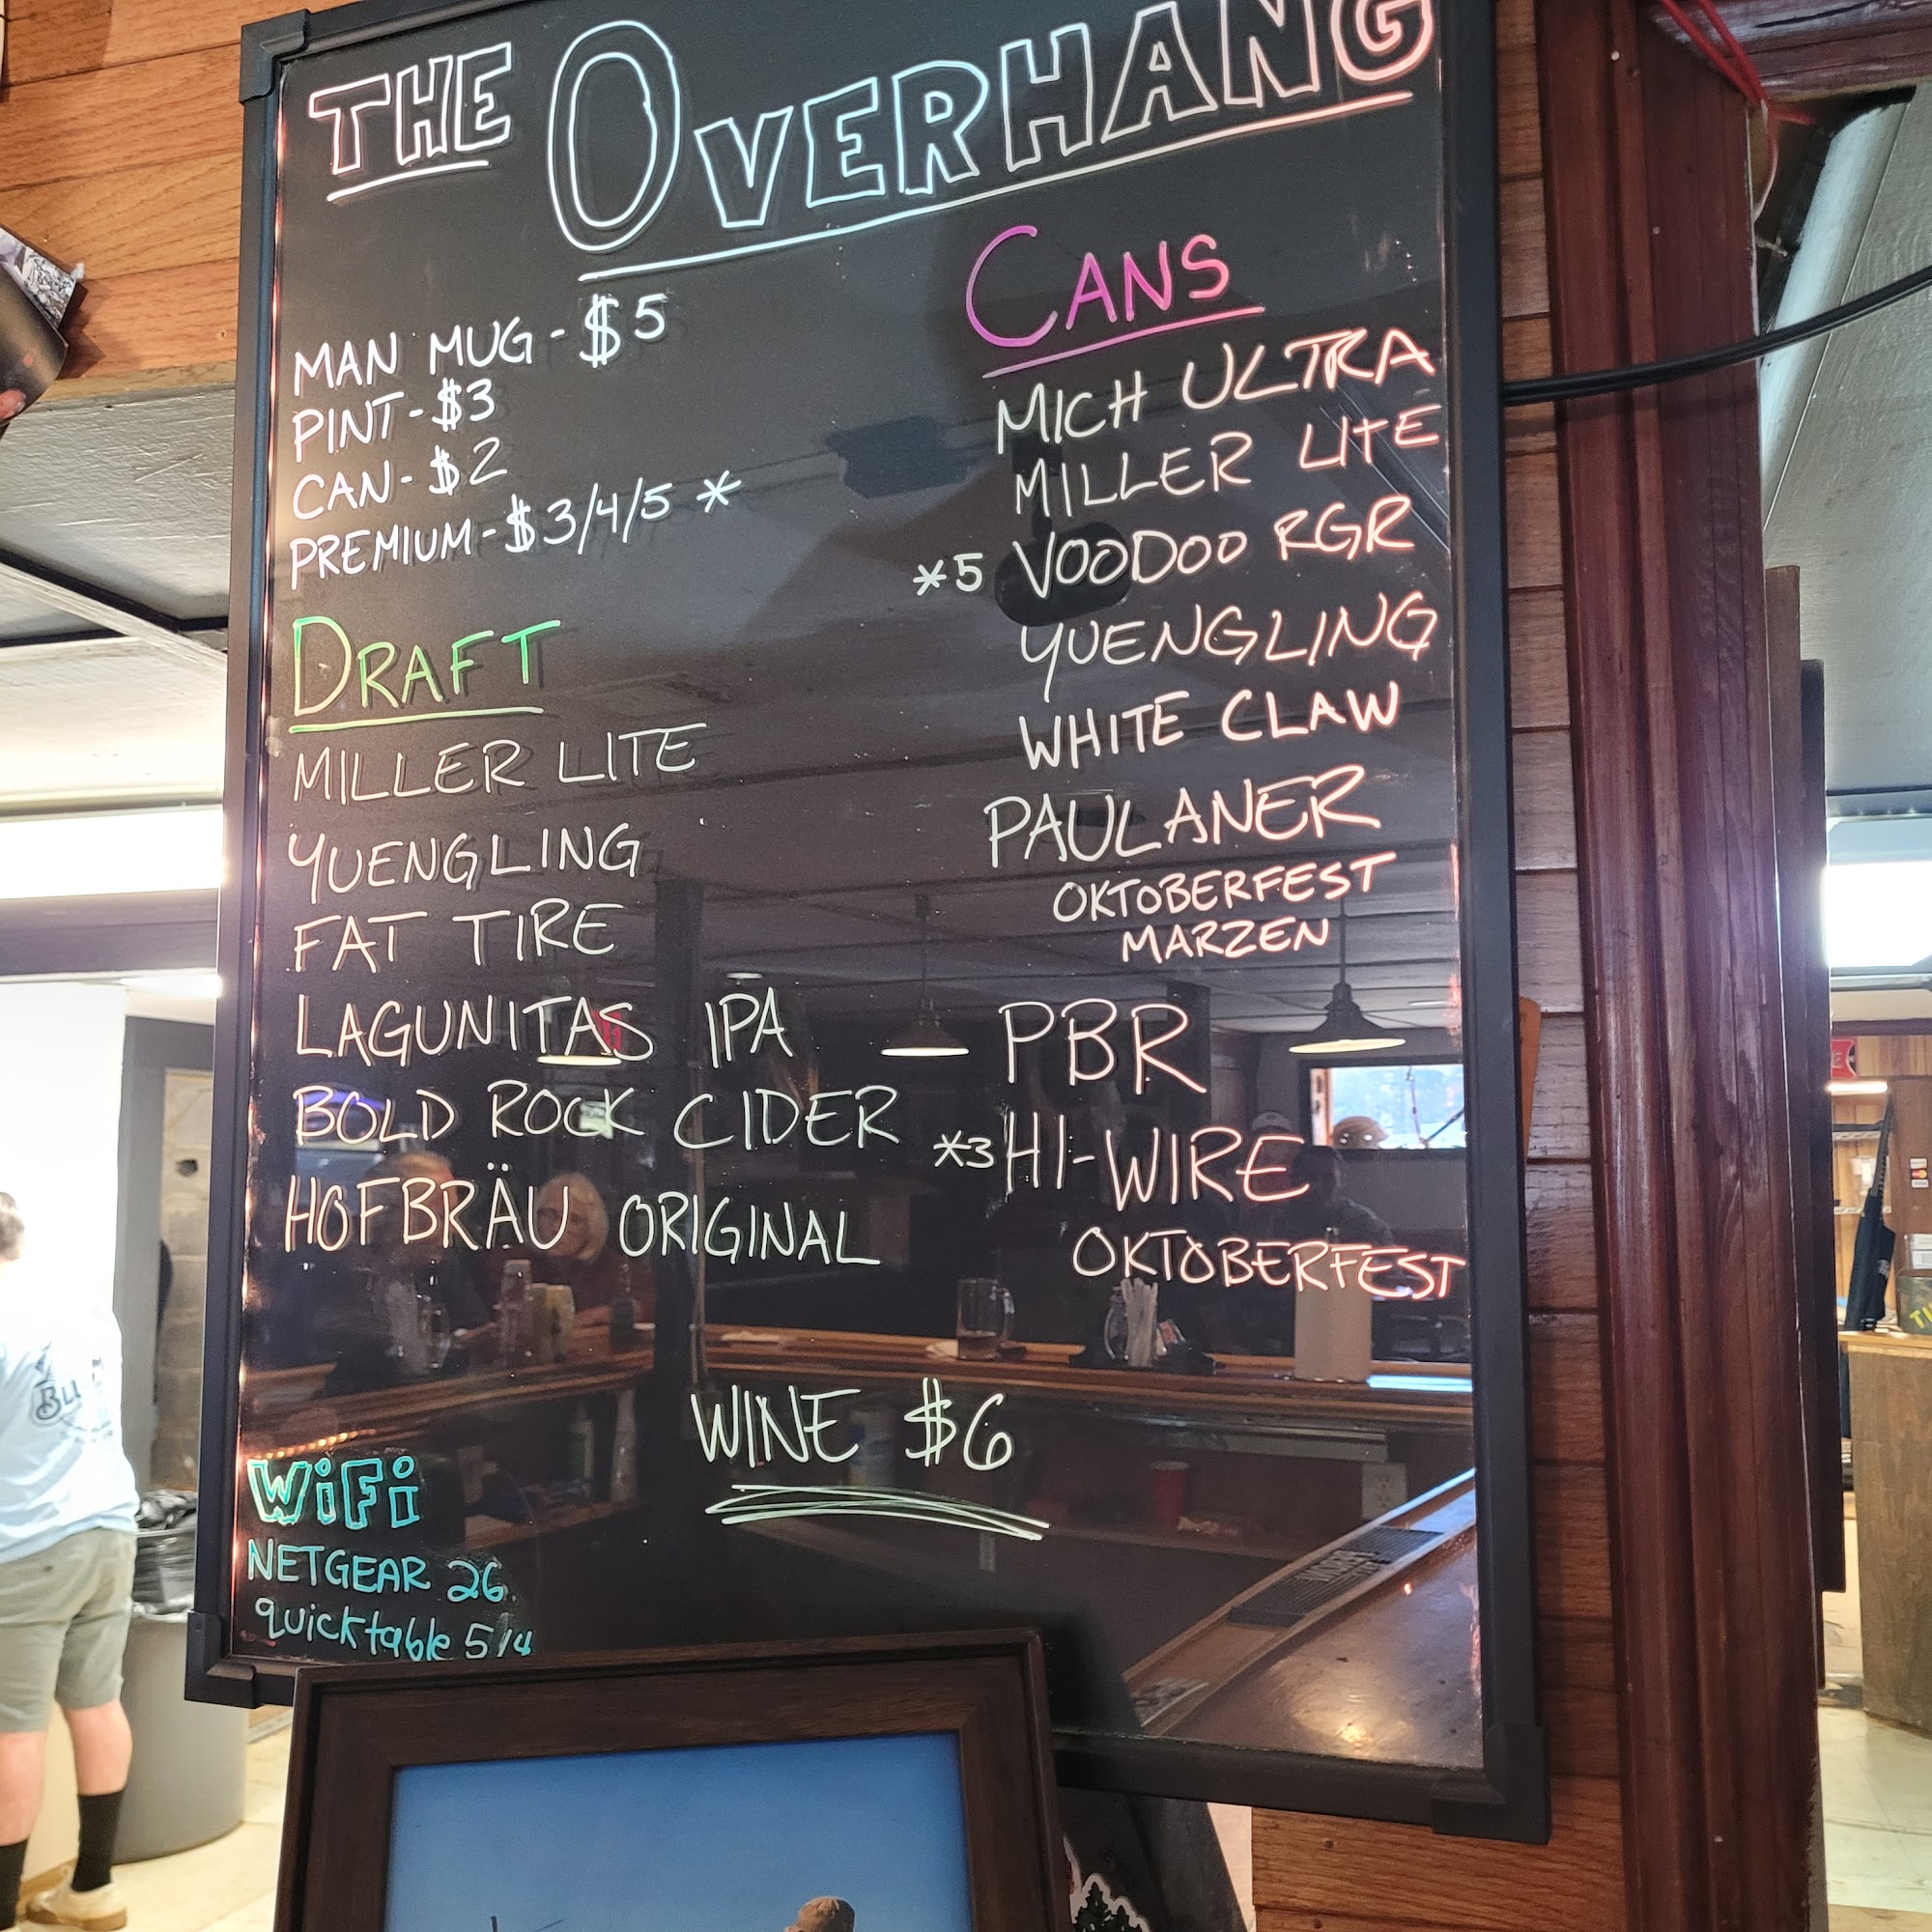 THE OVERHANG
MAN MUG - $5
PINT - $3
CAN - $2
PREMIUM - $3/4/5 *
DRAFT
MILLER LITE
YUENGLING
FAT TIRE
LAGUNITAS IPA
BOLD ROCK CIDER
HOFBRÄU ORIGINAL
CANS
MICH ULTRA
MILLER LITE
*5 VOODOO RGR
YUENGLING
WHITE CLAW
PAULANER
OKTOBERFEST
MARZEN
PBR
*3 HI-WIRE
OKTOBERFEST
WINE $6
WiFi
NETGEAR 26
quicktable 514